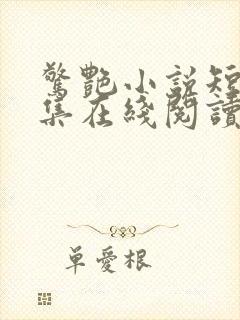 驚艷小說短
集在綫閱讀
單愛根